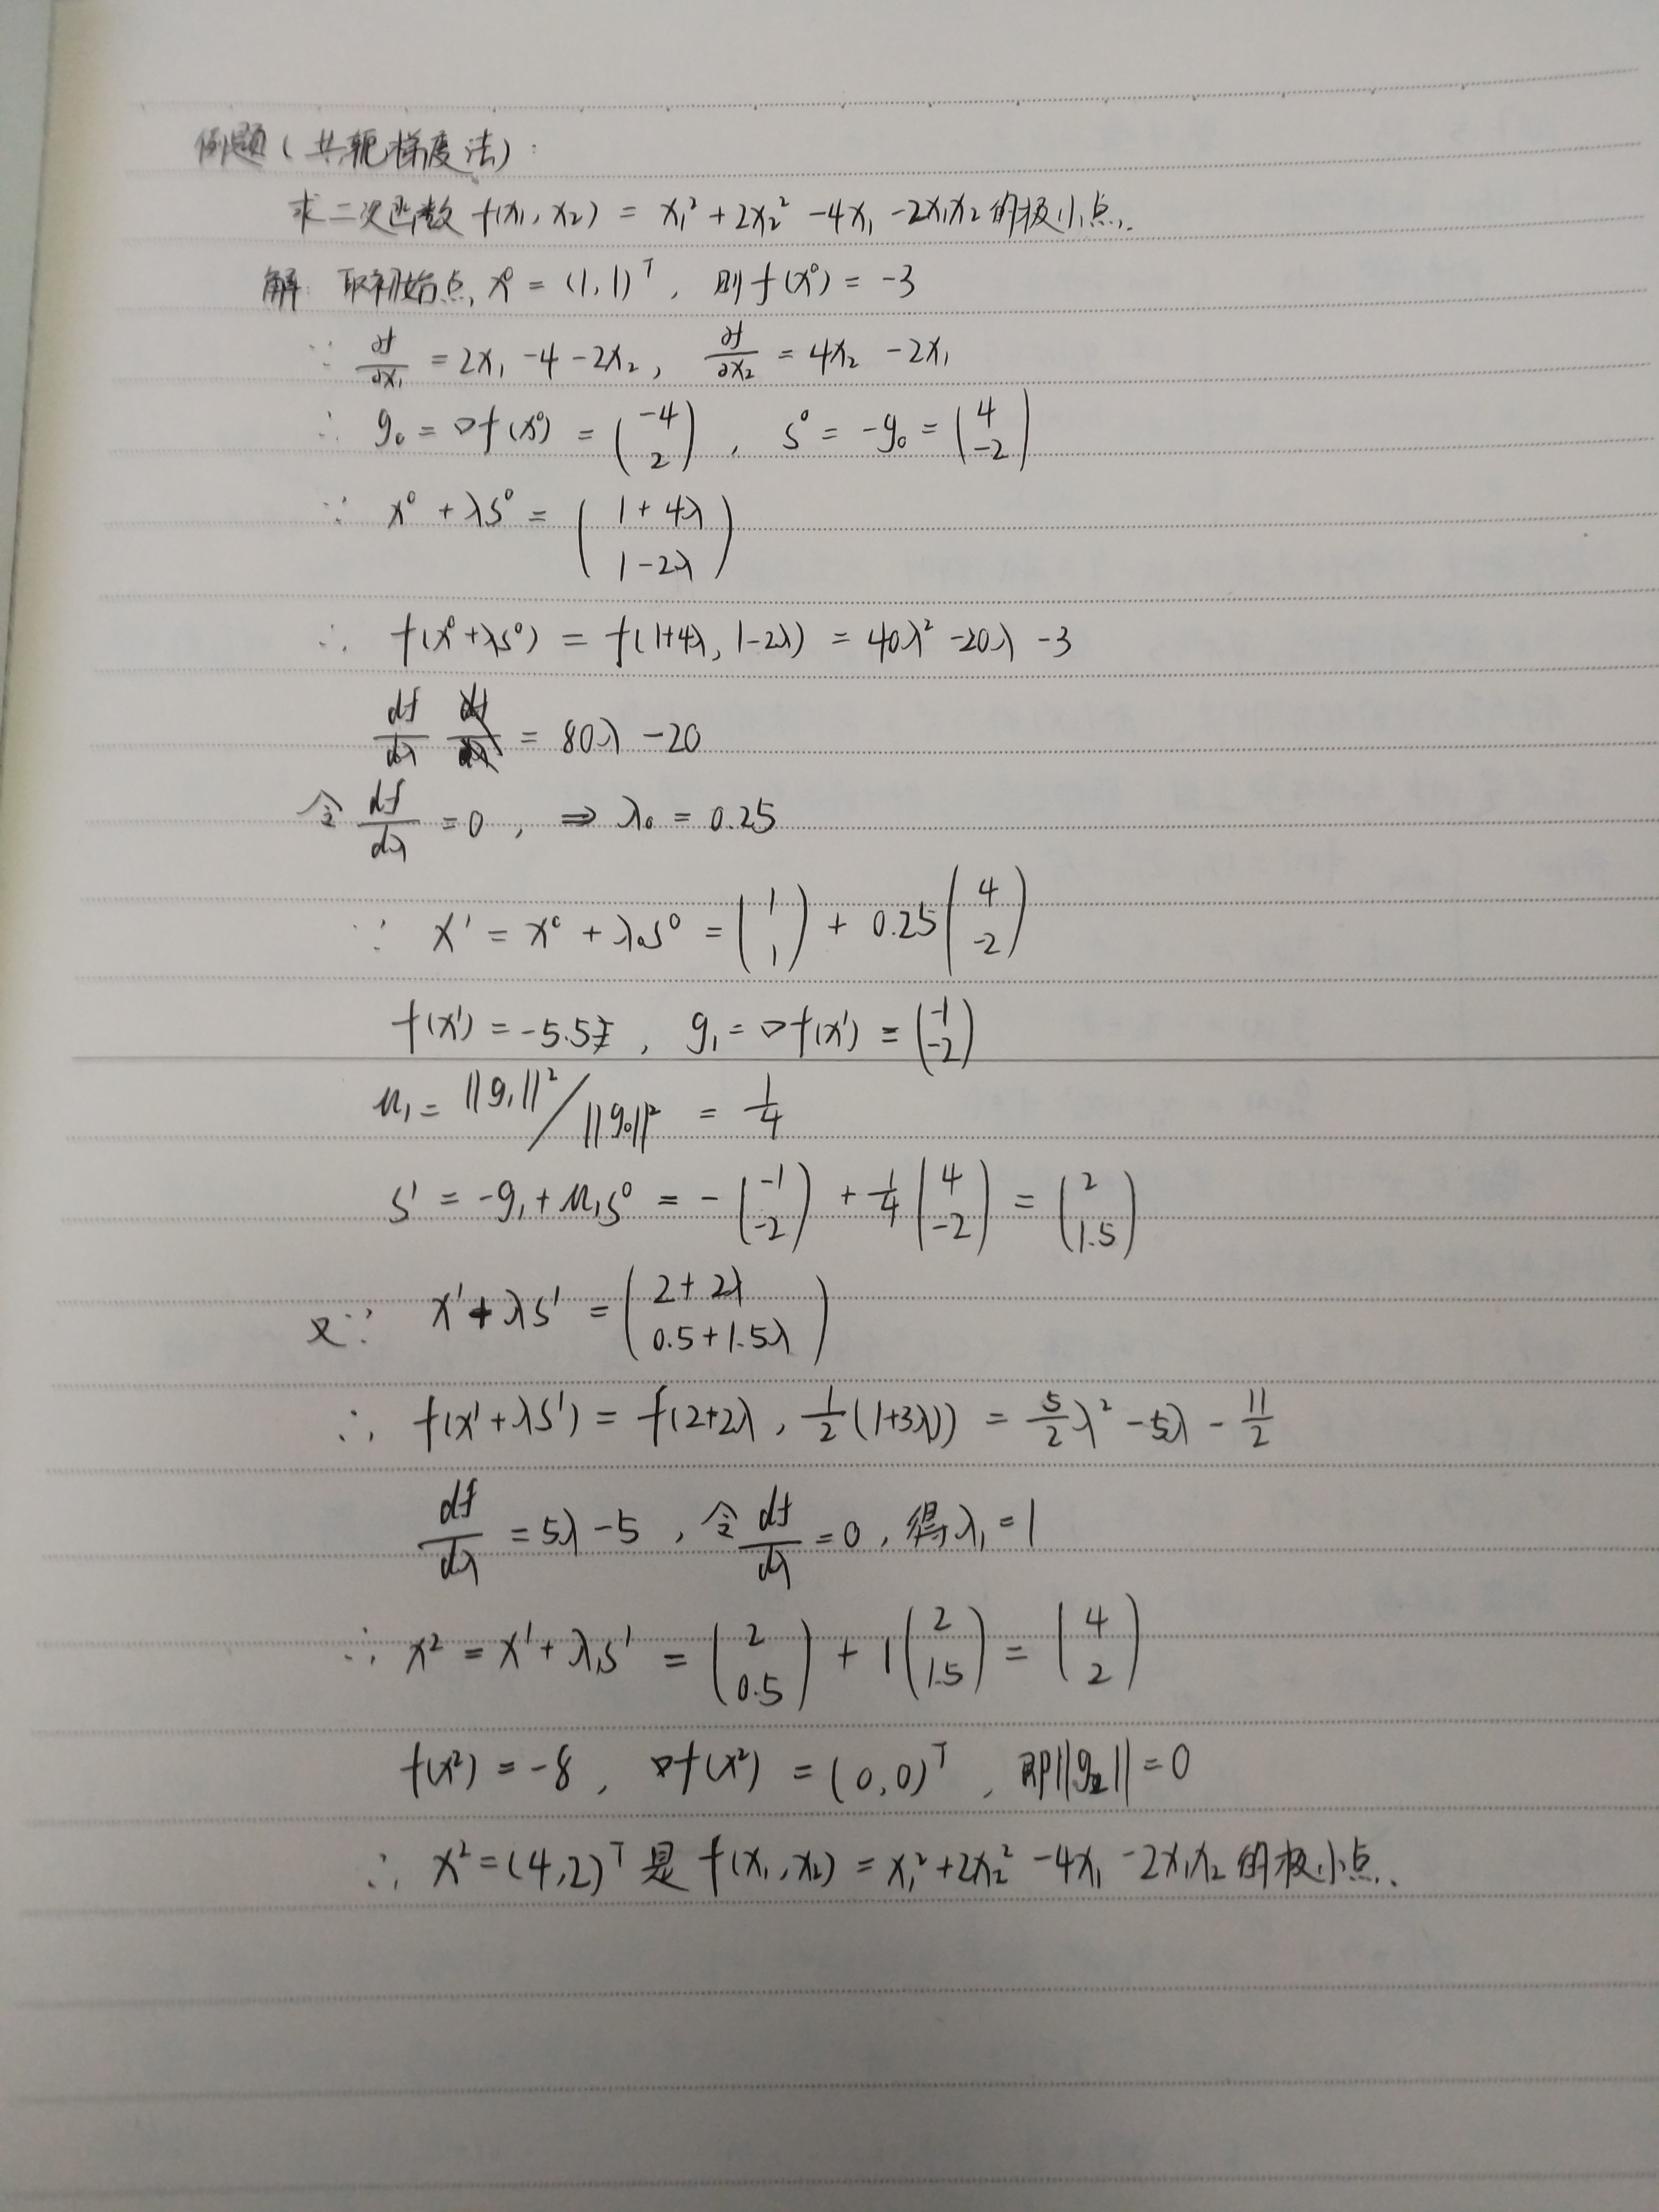 例题(共轭梯度法):
求二次函数 f(x₁, x₂) = x₁² + 2x₂² - 4x₁ - 2x₁x₂ 的极小点.
解: 取初始点 x⁰ = (1, 1)ᵀ, 则 f(x⁰) = -3
∵ ∂f/∂x₁ = 2x₁ - 4 - 2x₂, ∂f/∂x₂ = 4x₂ - 2x₁
∴ g₀ = ∇f(x⁰) = (-4 2), s⁰ = -g₀ = (4 -2)
∵ x⁰ + λs⁰ = (1 + 4λ 1 - 2λ)
∴ f(x⁰ + λs⁰) = f(1+4λ, 1-2λ) = 40λ² - 20λ - 3
df/dλ = 80λ - 20
令 df/dλ = 0, ⇒ λ₀ = 0.25
∵ x¹ = x⁰ + λ₀s⁰ = (1 1) + 0.25 (4 -2)
f(x¹) = -5.5, g₁ = ∇f(x¹) = (-1 -2)
u₁ = ||g₁||² / ||g₀||² = 1/4
s¹ = -g₁ + u₁s⁰ = -(-1 -2) + 1/4 (4 -2) = (2 1.5)
又∵ x¹ + λs¹ = (2 + 2λ 0.5 + 1.5λ)
∴ f(x¹ + λs¹) = f(2+2λ, 1/2(1+3λ)) = 5/2 λ² - 5λ - 11/2
df/dλ = 5λ - 5, 令 df/dλ = 0, 得 λ₁ = 1
∴ x² = x¹ + λ₁s¹ = (2 0.5) + 1 (2 1.5) = (4 2)
f(x²) = -8, ∇f(x²) = (0, 0)ᵀ, 即 ||g₂|| = 0
∴ x² = (4, 2)ᵀ 是 f(x₁, x₂) = x₁² + 2x₂² - 4x₁ - 2x₁x₂ 的极小点.